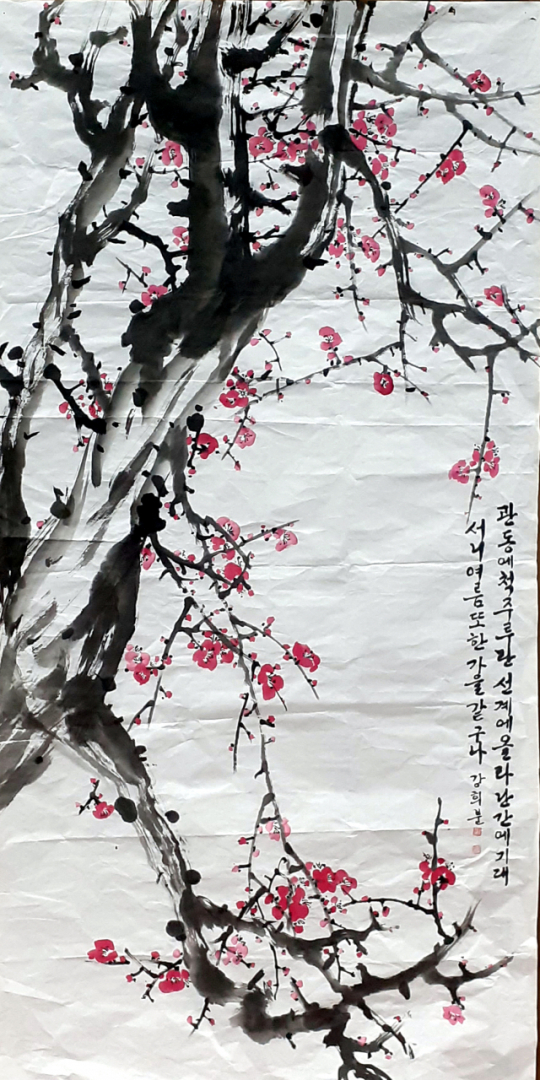 관동에척주루란선계에올라난간에기대
서니여름또한가을같구나 강희분